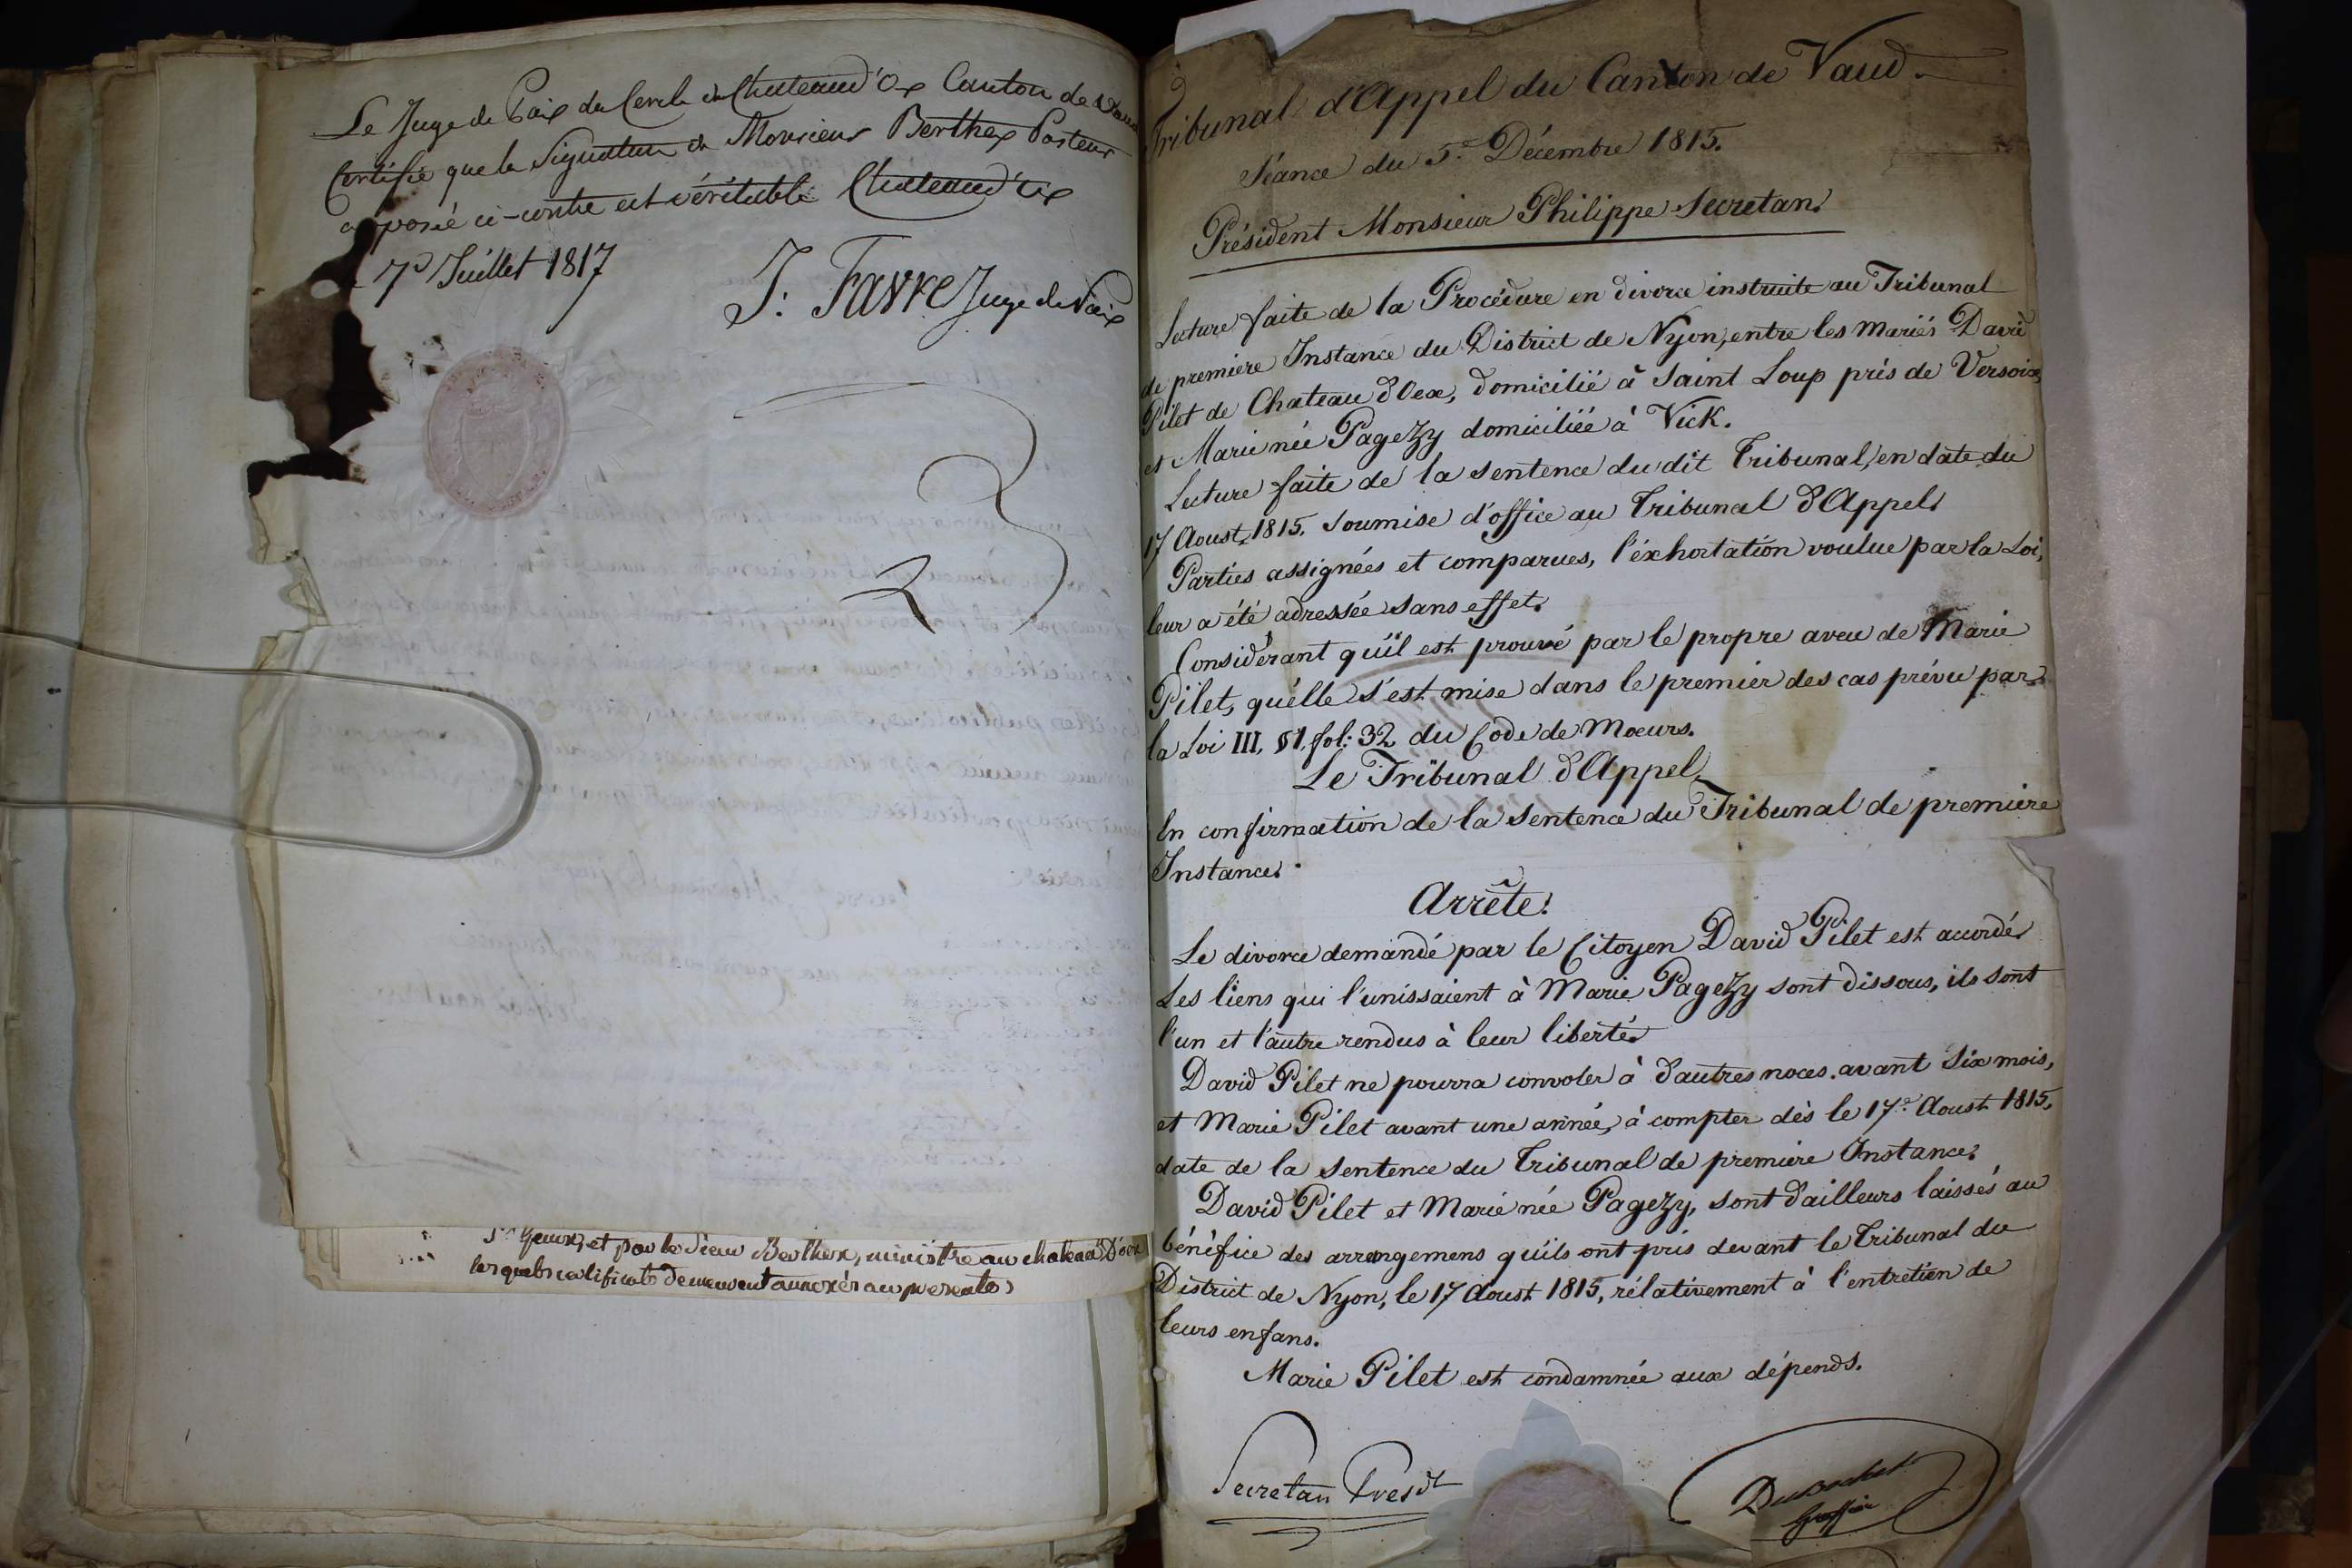 Le Juge de Paix du Cercle de Chateaud'Oex Canton de Vaud
Certifie que la Signature de Monsieur Berthex Pasteur
apposé ci-contre est véritable Chateaud'Oex
7e Juillet 1817
J: Favre Juge de Paix
et par le Sieur Berthex, ministre au chateau D'oex
lesquels certificats demeurent annexés au présente
Tribunal d'Appel du Canton de Vaud.
Séance du 5e Décembre 1815.
Président Monsieur Philippe Secretan.
Lecture faite de la Procédure en divorce instruite au Tribunal
de première Instance du District de Nyon, entre les mariés David
Pilet de Chateau d'Oex, domicilié à Saint Loup près de Versoix,
et Marie née Pagezy domiciliée à Vick.
Lecture faite de la sentence du dit Tribunal, en date du
17 Aoust 1815. soumise d'office au Tribunal d'Appel.
Parties assignées et comparues, l'éxhortation voulue par la Loi,
leur a été adressée sans effet.
Considérant qu'il est prouvé par le propre aveu de Marie
Pilet, qu'elle s'est mise dans le premier des cas prévu par
la Loi III, §1, fol: 32 du Code de Mœurs.
Le Tribunal d'Appel,
En confirmation de la sentence du Tribunal de première
Instance.
Arrête:
Le divorce demandé par le Citoyen David Pilet est accordé.
Les liens qui l'unissaient à Marie Pagezy sont dissous, ils sont
l'un et l'autre rendus à leur liberté.
David Pilet ne pourra convoler à d'autres noces avant six mois,
et Marie Pilet avant une année, à compter dès le 17e Aoust 1815,
date de la sentence du Tribunal de première Instance.
David Pilet et Marie née Pagezy, sont d'ailleurs laissés au
bénéfice des arrangemens qu'ils ont pris devant le Tribunal du
District de Nyon, le 17 Aoust 1815, rélativement à l'entretien de
leurs enfans.
Marie Pilet est condamnée aux dépends.
Secretan Presdt
Dubochet
Greffier